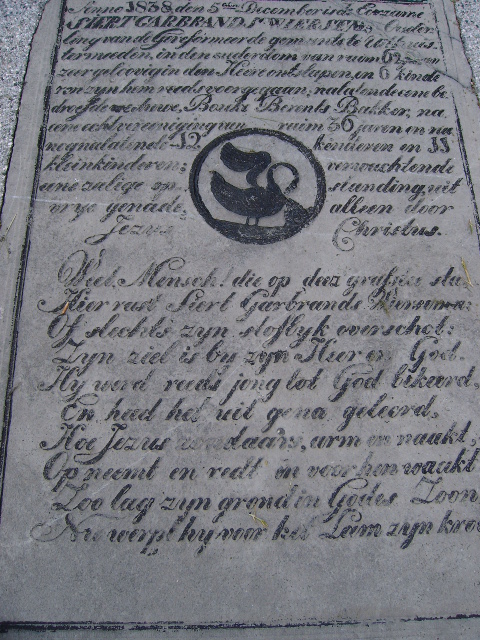 Anno 1838 den 5den December is de Eerzame
SIERT GARBRANDS WIERSEMA, Ouder-
ling van de Gereformeerde gemeente te
in den ouderdom van ruim 62
zeer geloovig in den Heere ontslapen, en 6 kinde
ren zyn hem reeds voorgegaan; nalatende eene be
droefde weduwe Bouke Berents Bakker, na
eene echtvereeniging van ruim 36 jaren en na
nog nalatende 12 kinderen en 33
kleinkinderen; verwachtende
eene zalige op- standing, uit
vrye genade, alleen door
Jezus Christus.
Wiel, Mensch! die op deez grafstee sta
Hier rust Siert Garbrands Wiersema:
Of slechts zyn stoflyk overschot:
Zyn ziel is by zyn Heer en God.
Hy werd reeds jong tot God bekeerd,
En had het uit gena geleerd,
Hoe Jezus zondaars, arm en naakt,
Op neemt en redt en voor hen waakt
Zoo lag zyn grond in Godes Zoon
Nu werpt hy voor het Lam zyn kroo